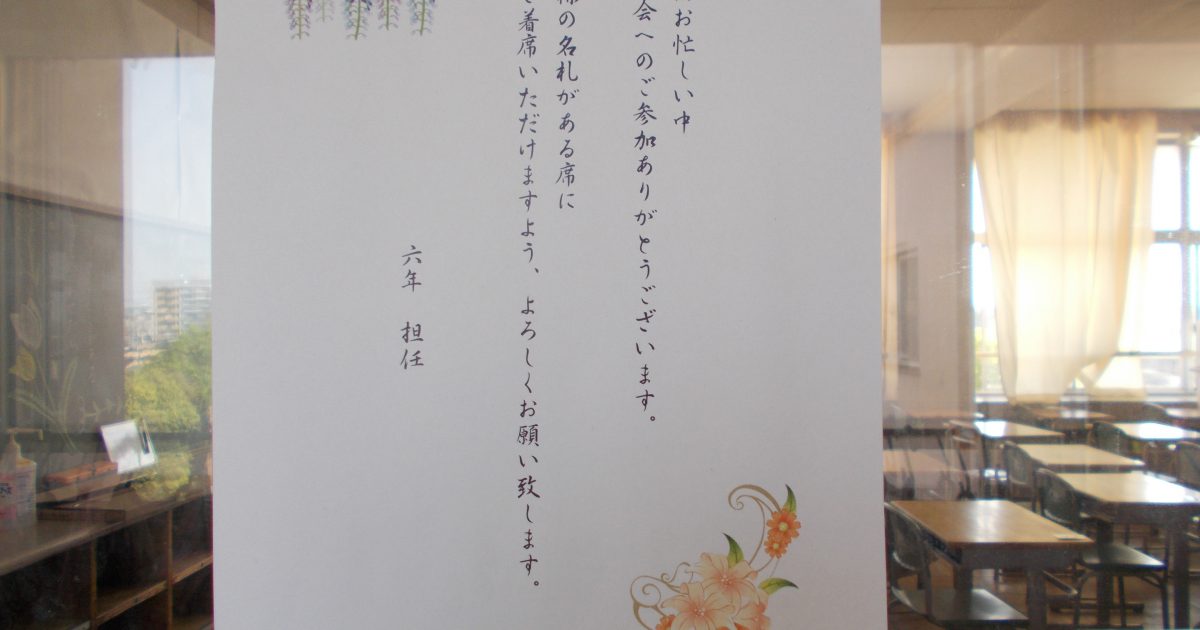 お忙しい中
会へのご参加ありがとうございます。
席の名札がある席に
着席いただけますよう、よろしくお願い致します。
六年 担任